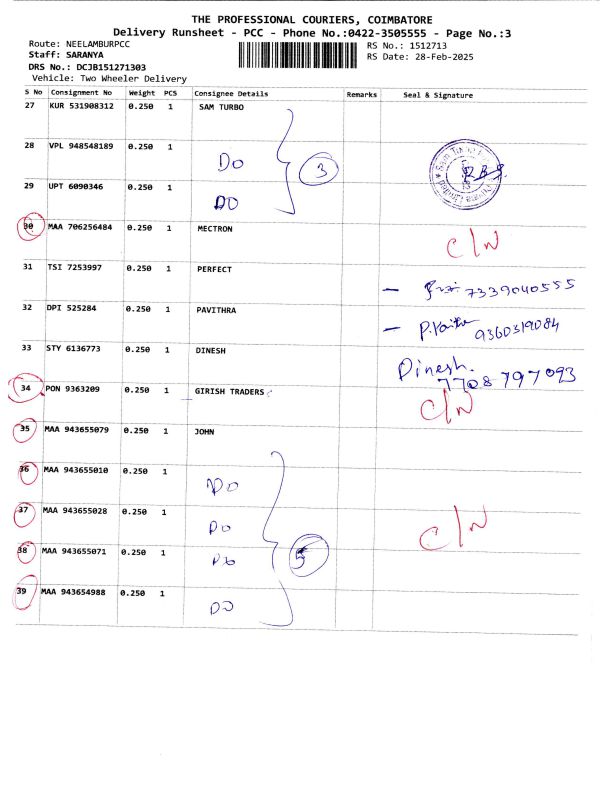 THE PROFESSIONAL COURIERS, COIMBATORE
Delivery Runsheet - PCC - Phone No.:0422-3505555 - Page No.:3
Route: NEELAMBURPCC
RS No.: 1512713
Staff: SARANYA
RS Date: 28-Feb-2025
DRS No.: DCJB151271303
Vehicle: Two Wheeler Delivery
S No Consignment No Weight PCS Consignee Details Remarks Seal & Signature
27 KUR 531908312 0.250 1 SAM TURBO
28 VPL 948548189 0.250 1 DO 3
29 UPT 6090346 0.250 1 DO
30 MAA 706256484 0.250 1 MECTRON C/N
31 TSI 7253997 0.250 1 PERFECT - 7339040555
32 DPI 525284 0.250 1 PAVITHRA - 9360319084
33 STY 6136773 0.250 1 DINESH Dinesh.
7708 797093
34 PON 9363209 0.250 1 GIRISH TRADERS C/N
35 MAA 943655079 0.250 1 JOHN
36 MAA 943655010 0.250 1 DO
37 MAA 943655028 0.250 1 DO C/N
38 MAA 943655071 0.250 1 DO 5
39 MAA 943654988 0.250 1 DO